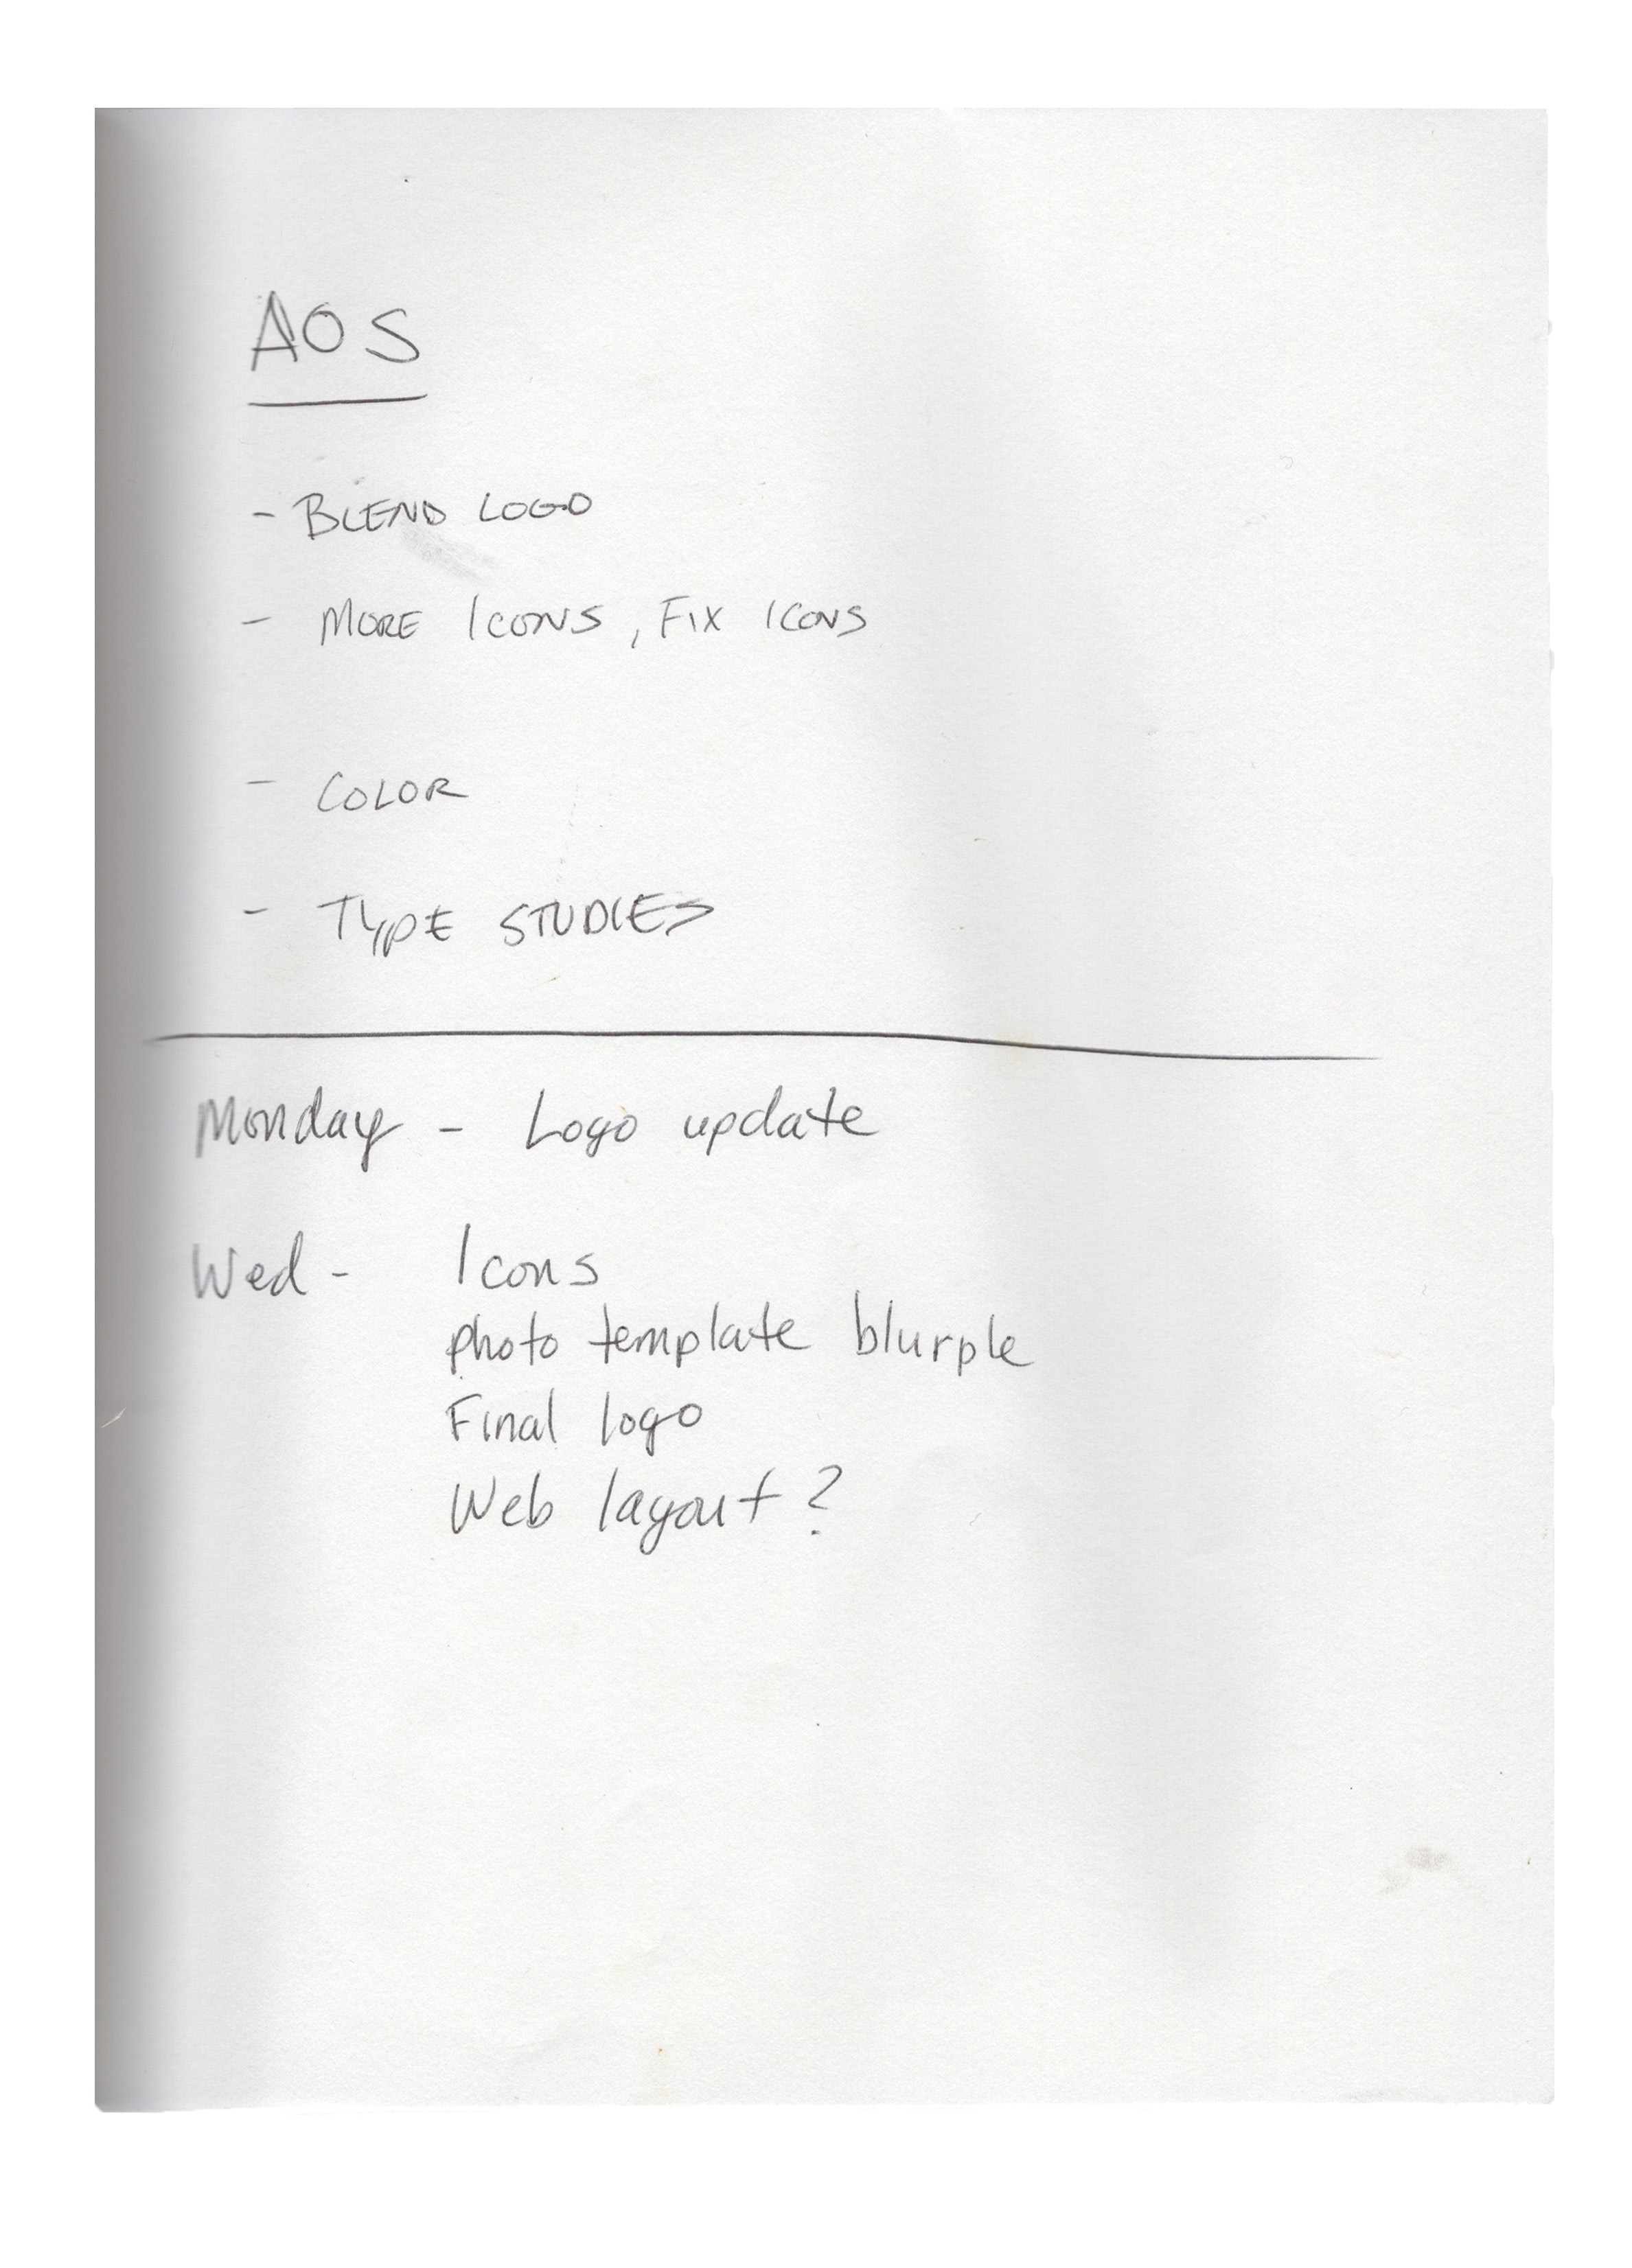 AOS
- BLEND LOGO
- MORE ICONS, FIX ICONS
- COLOR
- TYPE STUDIES
Monday - Logo update
Wed - Icons
photo template blurple
Final logo
Web layout?